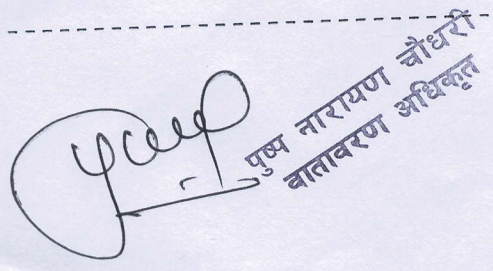 पुष्प नारायण चौधरी
वातावरण अधिकृत